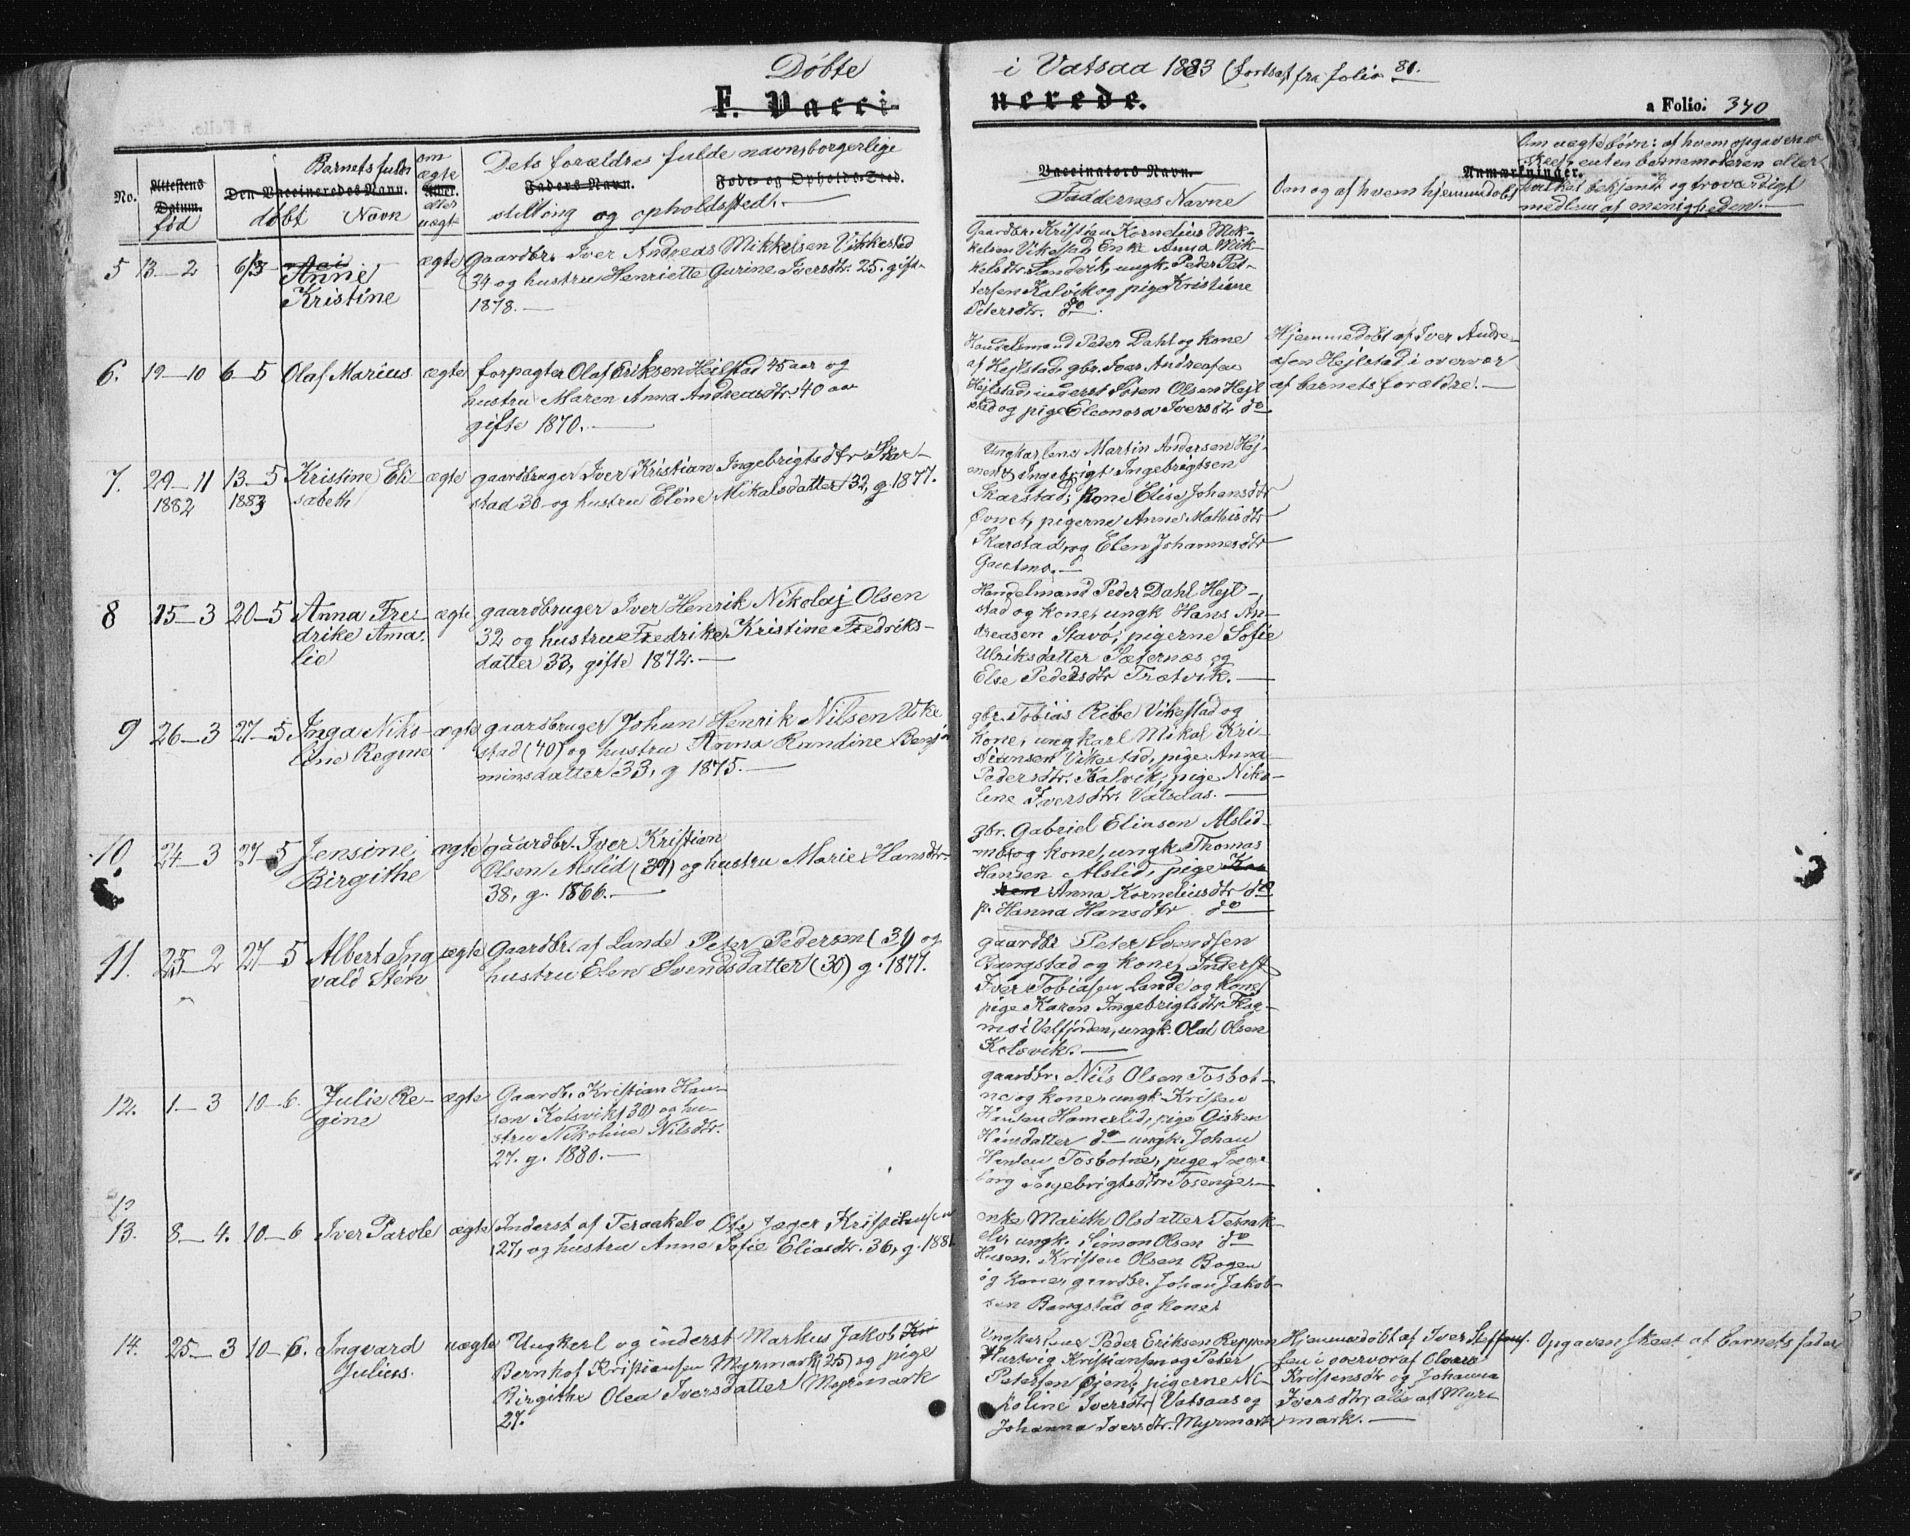 Døbte i Vatsaa 1883 (fortsat fra folio 81.
F. Vaccinerede.
a Folio. 340
No.
Attestens Datum.
født
Den Vaccineredes Navn.
Barnets fulde
døbt Navn
om ægte eller uægte
Alder.
Dets forældres fulde navn, borgerlige
Faders Navn. Føde- og Opholds-Sted.
stilling og opholdssted.
Vaccinators Navn.
Faddernes Navne
Om og af hvem hjemmedøbt
Anmærkninger.
Om uægte børn: af hvem opgaven er
skeet, enten barnemoderen eller
hvilket bekjendt og troværdigt
medlem af menigheden.
5 13–2 6/3 Anne
Kristine
ægte
Gaardbr. Iver Andreas Mikkelsen Vikkestad
34 og hustru Henriette Gurine Iversdtr. 25. gift
1878.
Gaardbr. Kristian Kornelius Mik-
kelsen Vikestad, Enke Anna Mik-
kelsdtr. Sandvik, ungk. Peder Pet-
tersen Kalvik og pige Kristine
Petersdtr. do.
6. 19–10 6–5 Olaf Marius ægte
forpagter Olaf Eriksen Heilstad 45 aar og
hustru Maren Anna Andreasdtr. 40 aar
gifte 1870.
Handelsmand Peder Dahl og kone
af Hejlstad, gbr. Iver Andreasen
Hejlstad, inderst Søren Olsen Hejl
stad og pige Eleonora Iversdtr do
Hjemmedøbt af Iver Andre-
asen Hejlstad i overvær
af barnets forældre.
7. 29–11 13–5 Kristine Eli
1882 1883 sabeth
ægte
gaardbruger Iver Kristian Ingebrigtsdtr Skar-
stad 30 og hustru Eline Mikalsdatter 32, g. 1877.
Ungkarlene Martin Andersen Høj-
Ingebrigt Ingebrigtsen
Skarstad, kone Elise Johansdtr
Øvnet, pigerne Anne Mathisdtr
Skarstad, og Elen Johannesdtr
8 15–3 20–5 Anna Fre-
drike Ama-
lie
ægte
gaardbruger Iver Henrik Nikolaj Olsen
32 og hustru Fredrikke Kristine Fredriks-
datter 33, gifte 1872.
Handelmand Peder Dahl Hejl-
stad og kone, ungk Hans An-
dreasen Stavø, pigerne Sofie
Ulriksdatter Sæternæs og
Else Pedersdtr Trætvik.
9 26–3 27–5 Inga Niko-
line Regine
ægte
gaarsbruger Johan Henrik Nilsen Vike
stad (40) og hustru Anna Randine Benja
minsdatter 33, g 1875.
gbr. Tobias Ribe Vikestad og
kone, ungkarl Mikal Kri-
stiansen Vikestad, pige Anna
Pedersdtr. Kalvik, pige Niko-
line Iversdtr. Vatsaas.
10 24–3 27–5 Jensine
Birgithe
ægte
gaardbr. Iver Kristian
Olsen Alslid (39) og hustru Marie Hansdtr
38, g. 1866.
gbr. Gabriel Eliasen Alslid-
mo og kone, ungk. Thomas
Hansen Alslid, pige
Anna Korneliusdtr do
p. Hanna Hansdtr do
11. 25–2 27–5 Albert Ing
vald Sten
ægte
Gaardbr. af Lande Peter Pedersen (31) og
hustru Elen Svendsdatter (30) g. 1877.
gaardbr Peter Svendsen
Bangstad og kone, Inderst
Iver Tobiasen Lande og kone,
pige Karen Ingebrigtsdtr. Flog-
mo i Velfjorden, ungk. Olai Olsen
Kolsvik.
12. 1–3 10–6. Julie Re-
gine
ægte
Gaardb. Kristian Han-
sen Kolsvik (30) og hu-
stru Nikoline Nilsdtr.
27. g. 1880.
gaardbr. Niis Olsen Tosbot-
ne og kone, ungk. Kristen
Hansen Hamerlid, pige Gisken
Hansdatter do ungk. Johan
Hansen Tosbotne, pige Inge-
borg Ingebrigtsdtr Tosenget
13. 8–4. 10–6 Iver Parole ægte
Inderst af Teraakelv Ole Jæger Kristiansen
27, og hustru Anne Sofie Eliasdtr. 36, g. 1881
enke Marith Olsdatter Teraak-
elv, ungk. Simon Olsen do
Husm. Kristen Olsen Bogen
og kone, gardbr. Johan Jakob-
sen Bangstad og kone.
14. 25–3 10–6. Ingvard
Julius.
uægte
Ungkerl og inderst Markus Jakob
Bernhof Kristiansen Myrmark (25) og pige
Birgithe Olea Iversdatter Myrmark
27.
Ungkarlene Peder Eriksen Reppen
Hartvig Kristiansen og Peter
Petersen Øjen, pigerne Ni-
koline Iversdtr Vatsaas og
Johanna Iversdtr. Myrmark
Hjemmedøbt af Iver Steffen-
sen i overvær af Olava
Kristensdtr og Johanna
Iversdtr, alle af Myr
mark.
Opgaven skeet af barnets fader